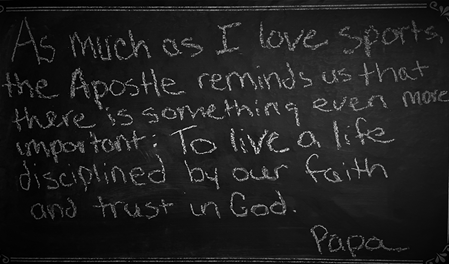 As much as I love sports,
the Apostle reminds us that
there is something even more
important: To live a life
disciplined by our faith
and trust in God.
Papa